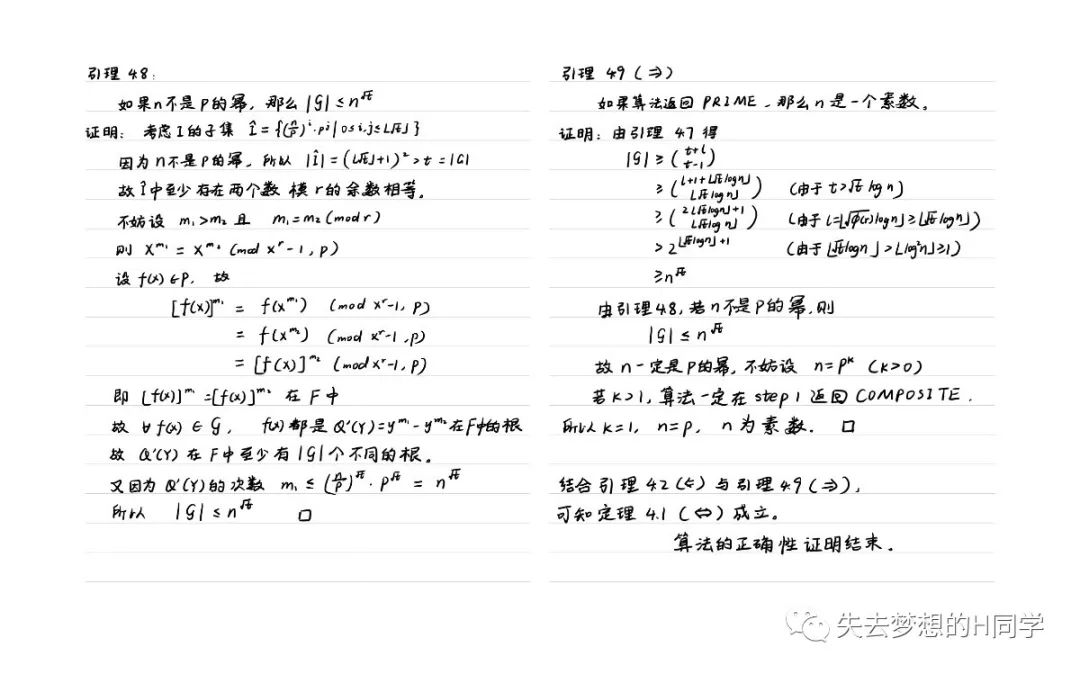 引理 4.8:
如果n不是P的幂, 那么 |G| ≤ n^√t
证明: 考虑I的子集 Î = {(n/p)^i · p^j | 0≤i,j≤⌊√t⌋}
因为n不是P的幂, 所以 |Î| = (⌊√t⌋+1)² > t = |G|
故Î中至少存在两个数 模r的余数相等。
不妨设 m₁>m₂ 且 m₁=m₂ (mod r)
则 X^m₁ = X^m₂ (mod x^r-1, p)
设 f(x) ∈ P, 故
[f(x)]^m₁ = f(x^m₁) (mod x^r-1, p)
= f(x^m₂) (mod x^r-1, p)
= [f(x)]^m₂ (mod x^r-1, p)
即 [f(x)]^m₁ = [f(x)]^m₂ 在 F中
故 ∀f(x) ∈ G, f(x)都是Q'(Y)=y^m₁-y^m₂在F中的根
故 Q'(Y) 在 F中至少有|G|个不同的根。
又因为Q'(Y)的次数 m₁ ≤ (n/p)^√t · p^√t = n^√t
所以 |G| ≤ n^√t □
引理 4.9 (⇒)
如果算法返回 PRIME, 那么n是一个素数。
证明: 由引理 4.7 得
|G| ≥ (t+l t-1)
≥ (l+1+⌊√t log n⌋ ⌊√t log n⌋) (由于 t>√t log n)
≥ (2⌊√t log n⌋+1 ⌊√t log n⌋) (由于 l=⌊√φ(r) log n⌋≥⌊√t log n⌋)
> 2^⌊√t log n⌋+1 (由于⌊√t log n⌋>⌊log²n⌋≥1)
≥ n^√t
由引理4.8, 若n不是P的幂, 则
|G| ≤ n^√t
故 n一定是P的幂, 不妨设 n=p^k (k>0)
若k>1, 算法一定在step 1 返回 COMPOSITE.
所以 k=1, n=p, n为素数. □
结合引理 4.2 (⇐) 与引理 4.9 (⇒),
可知定理 4.1 (⇔) 成立。
算法的正确性证明结束.
失去梦想的H同学